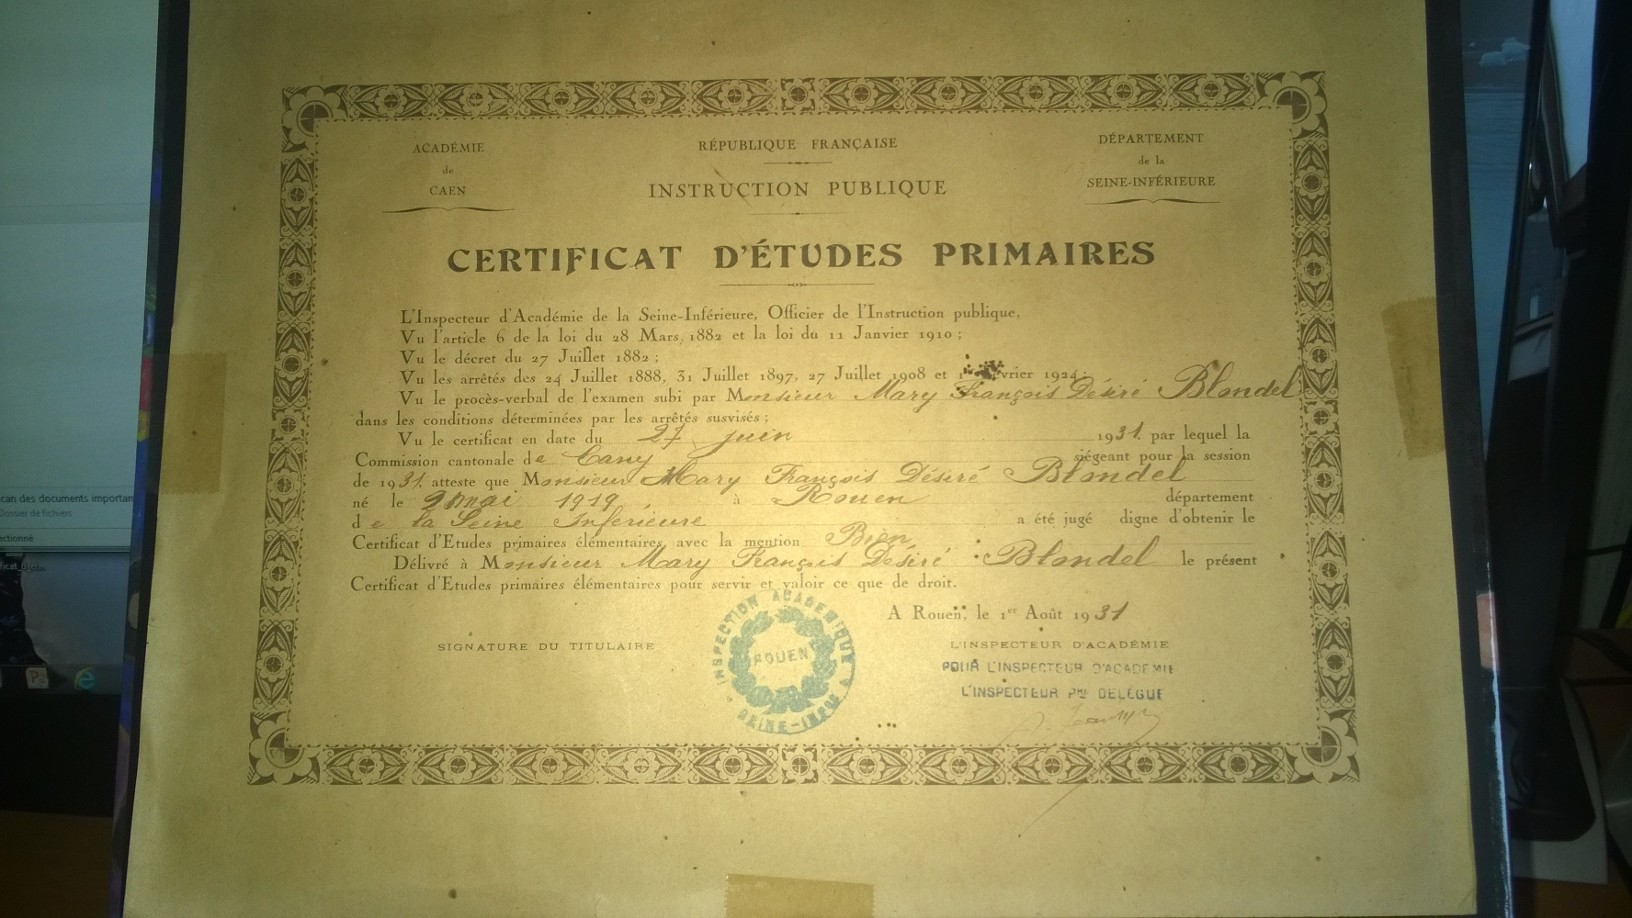 ACADÉMIE
de
CAEN
RÉPUBLIQUE FRANÇAISE
INSTRUCTION PUBLIQUE
DÉPARTEMENT
de la
SEINE-INFÉRIEURE
CERTIFICAT D'ÉTUDES PRIMAIRES
L'Inspecteur d'Académie de la Seine-Inférieure, Officier de l'Instruction publique,
Vu l'article 6 de la loi du 28 Mars 1882 et la loi du 11 Janvier 1910 ;
Vu le décret du 27 Juillet 1882 ;
Vu les arrêtés des 24 Juillet 1888, 31 Juillet 1897, 27 Juillet 1908 et vrier 1924 ;
Vu le procès-verbal de l'examen subi par Monsieur Mary François Désiré Blondel
dans les conditions déterminées par les arrêtés susvisés ;
Vu le certificat en date du 27 juin 1931 par lequel la
Commission cantonale de Cany siégeant pour la session
de 1931 atteste que Monsieur Mary François Désiré Blondel
né le 9 mai 1919 à Rouen département
de la Seine Inférieure a été jugé digne d'obtenir le
Certificat d'Etudes primaires élémentaires avec la mention Bien
Délivré à Monsieur Mary François Désiré Blondel le présent
Certificat d'Etudes primaires élémentaires pour servir et valoir ce que de droit.
A Rouen, le 1er Août 1931
SIGNATURE DU TITULAIRE
INSPECTION ACADÉMIQUE
ROUEN
SEINE-INFRE
L'INSPECTEUR D'ACADÉMIE
POUR L'INSPECTEUR D'ACADÉMIE
L'INSPECTEUR PRE DÉLÉGUÉ
can des documents importan
Dossier de fichiers
ectionné